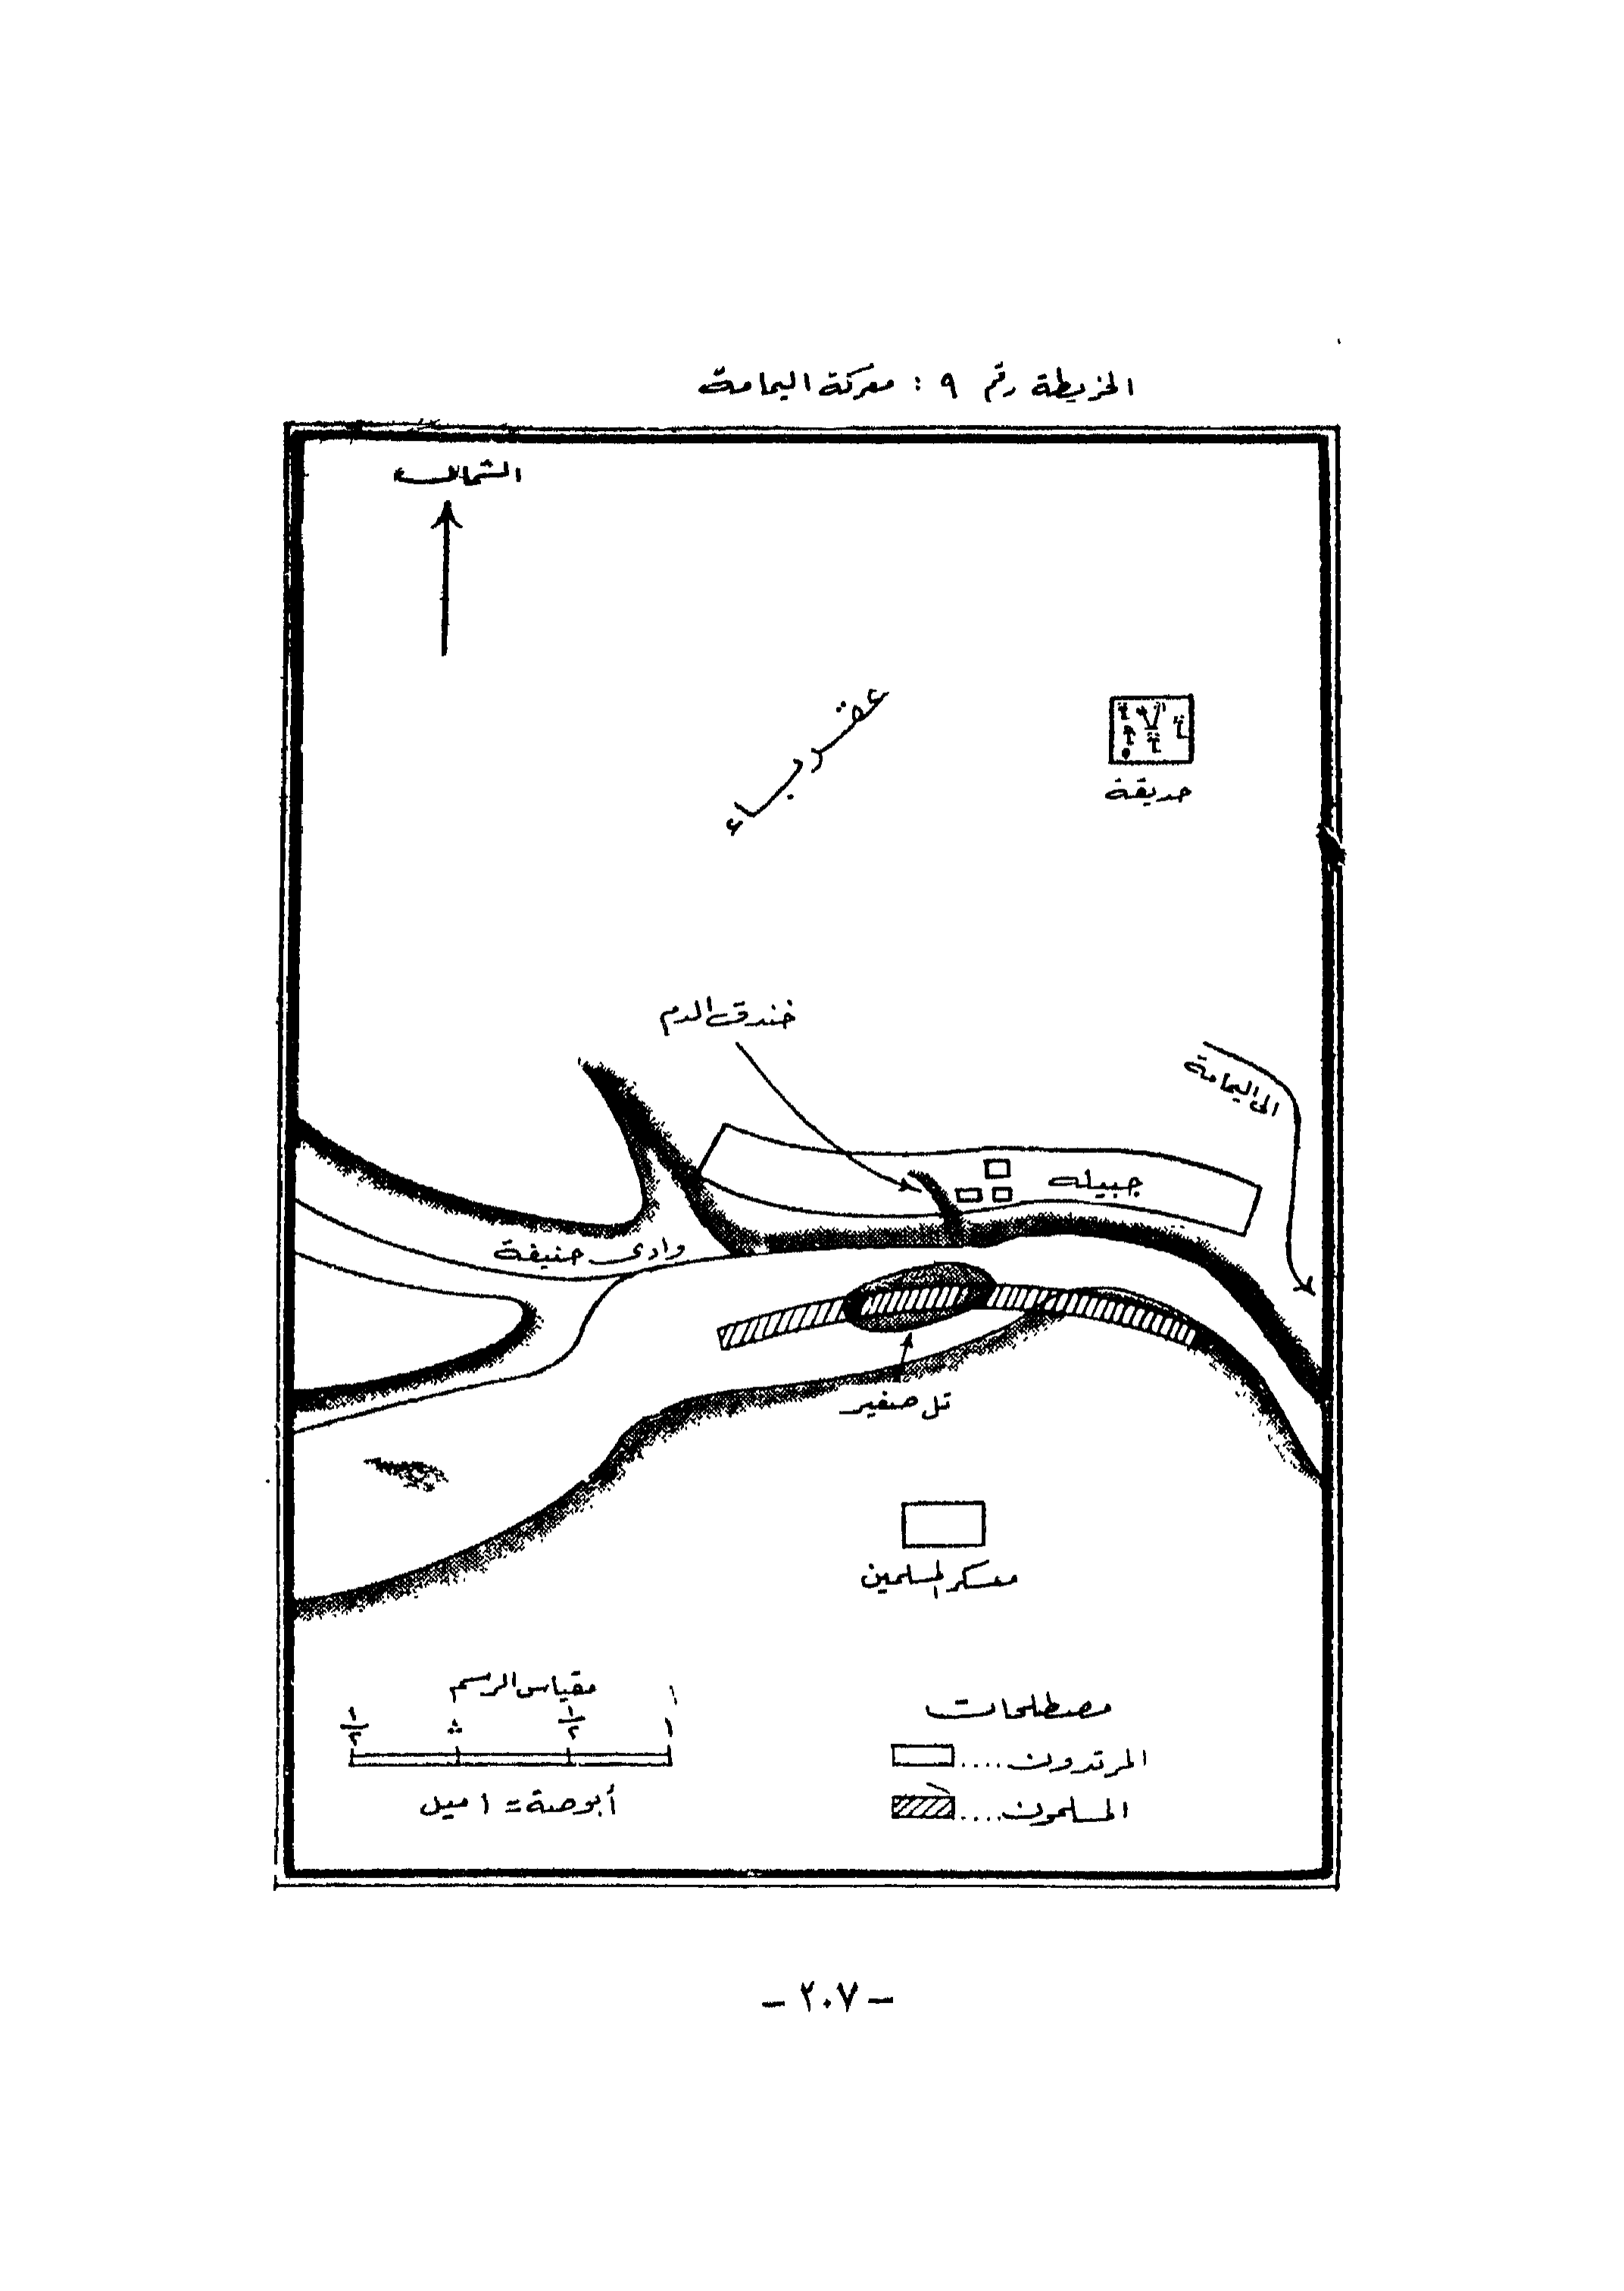 الخريطة رقم ٩ : معركة اليمامة
الشمال
عقرباء
حديقة
خندق الدم
الى اليمامة
جبيله
وادى حنيفة
تل صغير
معسكر المسلمين
مقياس الرسم
١/٢ ١/٢ ١
أبوصة = ١ ميل
مصطلحات
المرتدون ....
المسلمون ....
- ٢٠٧ -